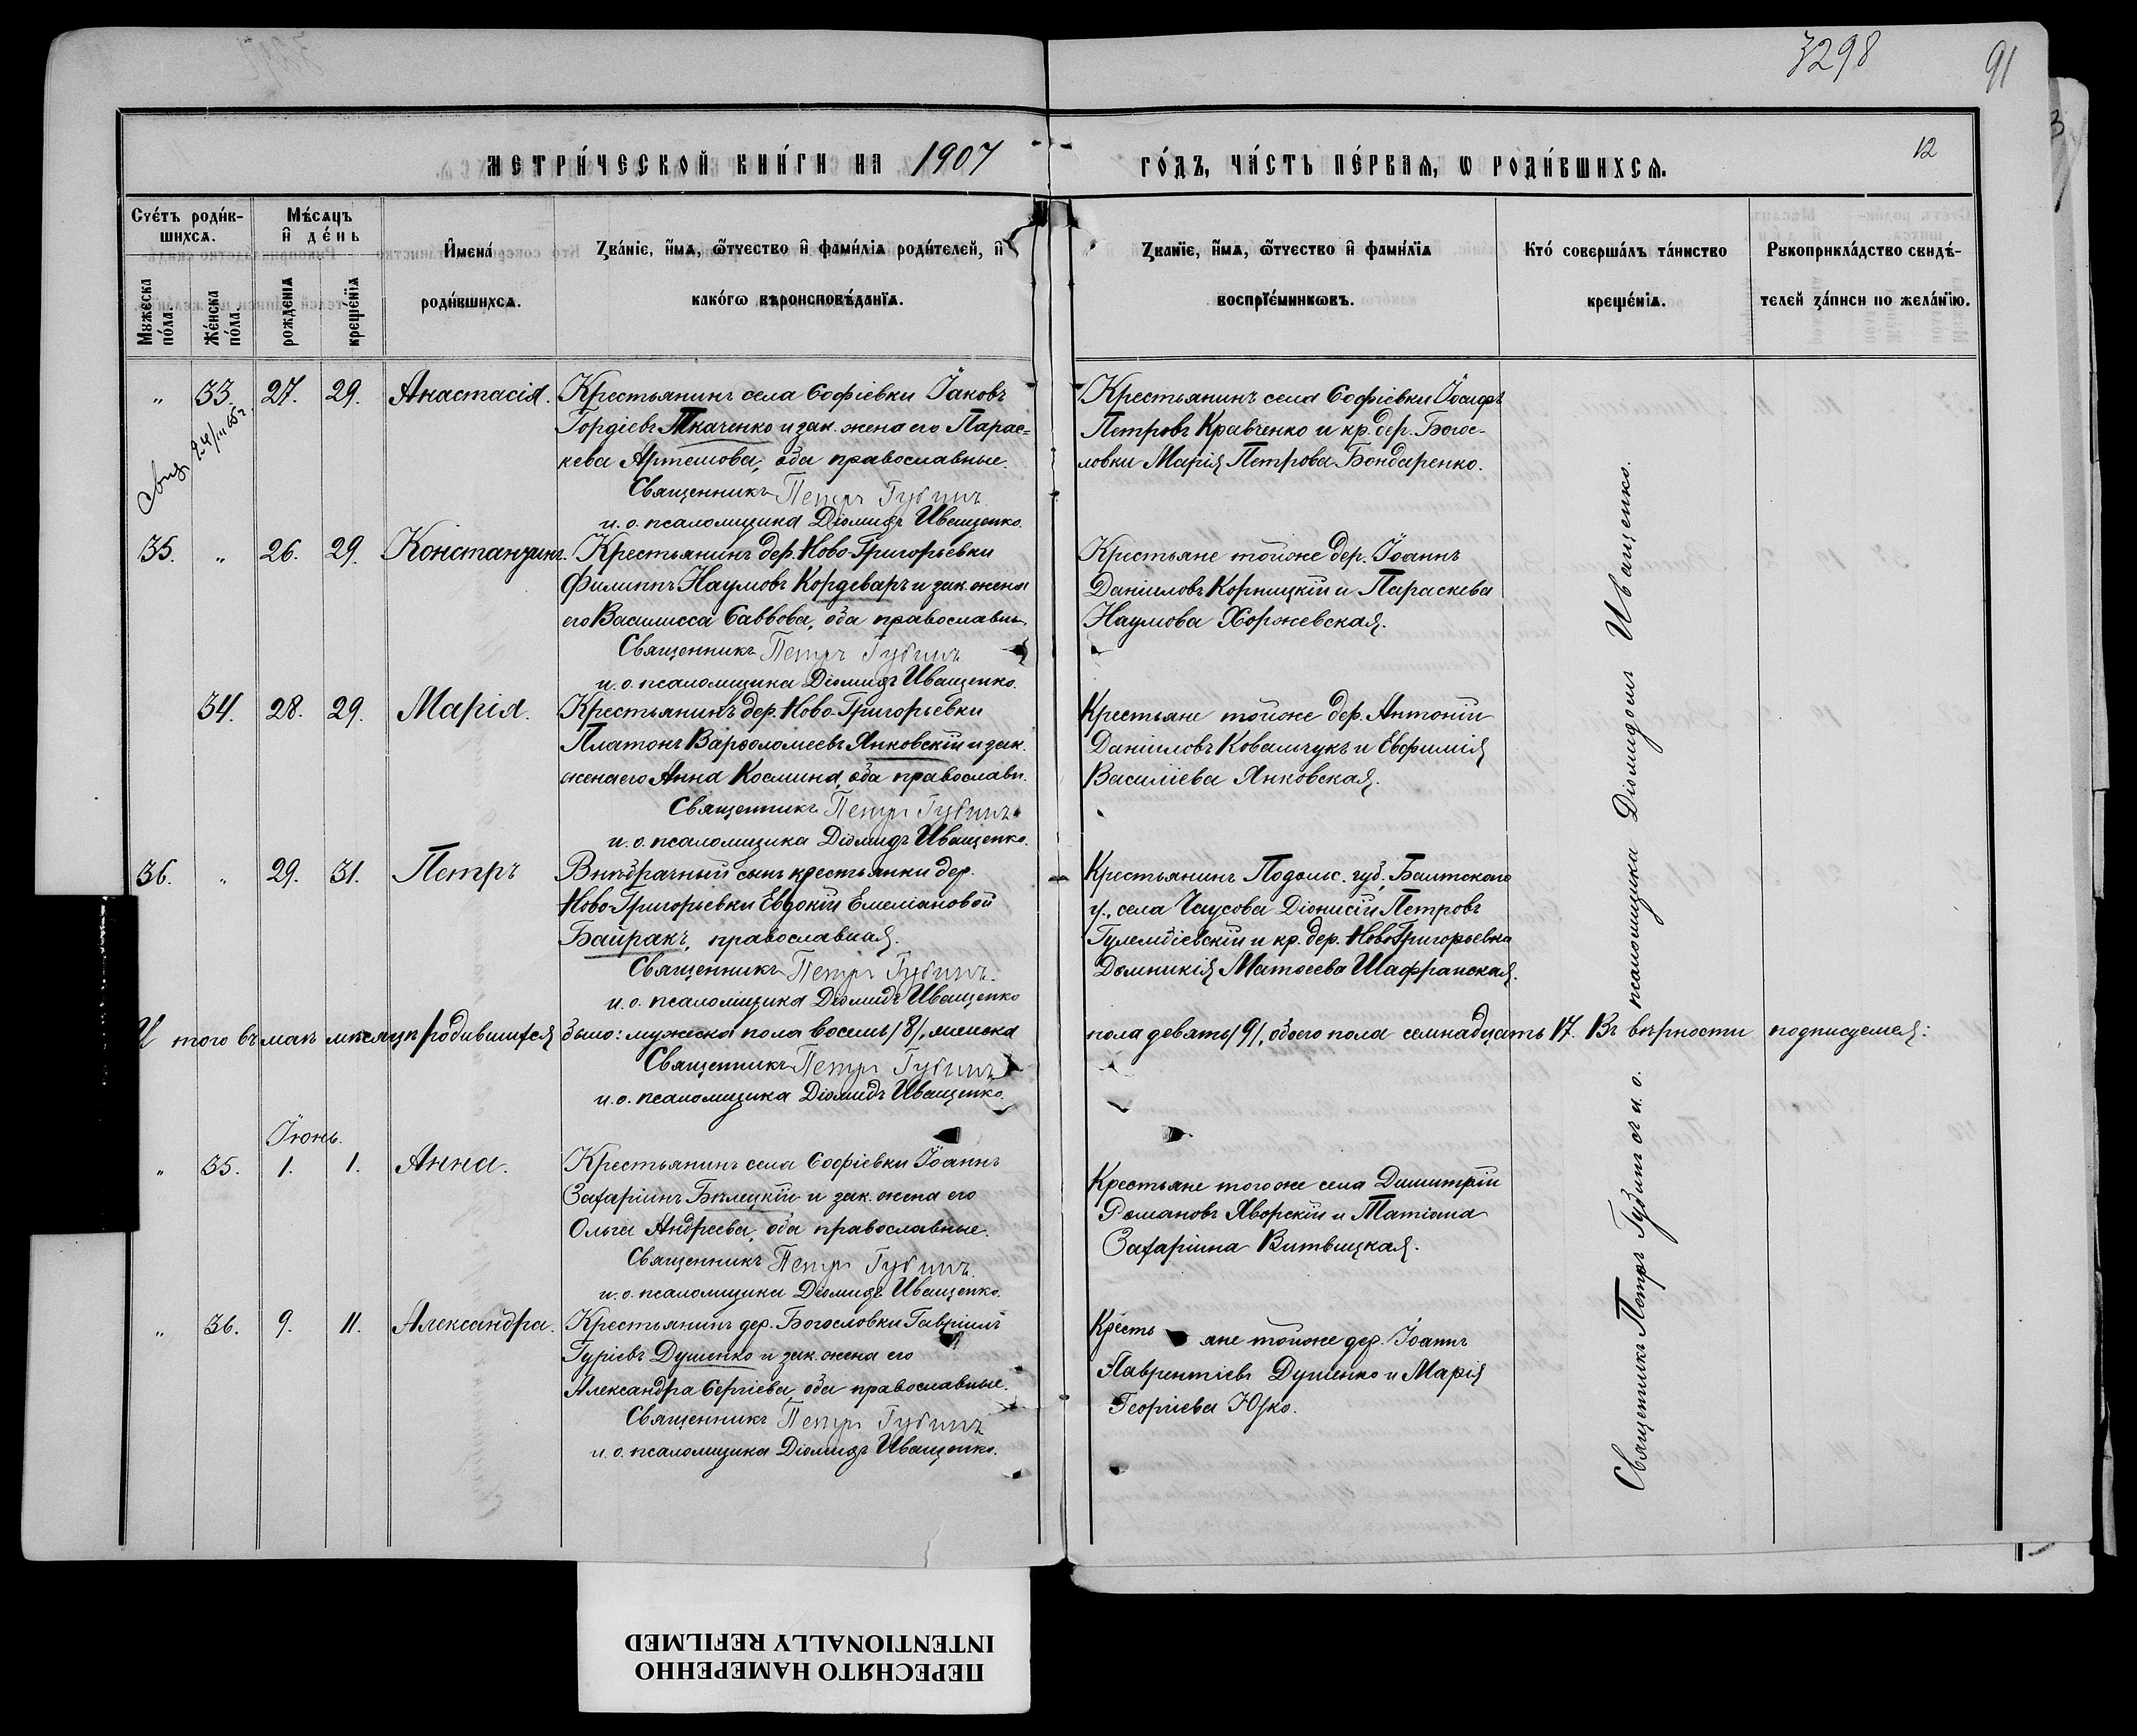 3298
91
12
МЕТРИ́ЧЕСКОЙ КНИ́ГИ НА 1907 ГО́ДЪ, ЧА́СТЬ ПЕ́РВАѦ, Ѡ РОДИ́ВШИХСѦ.
Счéтъ роди́в-
шихсѧ.
Мужеска
по́ла.
Же́нска
по́ла.
Мѣ́сѧцъ
и҆ де́нь
рожденїѧ
креще́нїѧ
И҆мена́
роди́вшихсѧ.
Зва́нїе, и҆́мѧ, ѻ҆́тчество и҆ фами́лїѧ роди́телей, и҆
како́гѡ вѣроисповѣ́данїѧ.
Званїе, и҆́мѧ, ѻ҆́тчество и҆ фами́лїѧ
воспрїе́мникѡвъ.
Кто́ соверша́лъ та́инство
креще́нїѧ.
Рукоприкла́дство свидѣ́-
телей за́писи по жела́нїю.
„ 33. 27. 29. Анастасія. Крестьянинъ села Софіевки Іаковъ
Гордіевъ Ткаченко и зак. жена его Парас=
кева Артемова, оба православные.
Священникъ Петръ Губинъ
и. о. псаломщика Діомидъ Иващенко.
Крестьянинъ села Софіевки Іосифъ
Петровъ Кравченко и кр. дер. Богос-
ловки Марія Петрова Бондаренко.
35. „ 26. 29. Константинъ. Крестьянинъ дер. Ново-Григорьевки
Филиппъ Наумовъ Кордеваръ и зак. жена
его Василисса Саввова, оба православн.
Священникъ Петръ Губинъ
и. о. псаломщика Діомидъ Иващенко.
Крестьяне тойже дер. Іоаннъ
Даніиловъ Корницкій и Параскева
Наумова Хоржевская.
34. 28. 29. Марія. Крестьянинъ дер. Ново-Григорьевки
Платонъ Варѳоломеевъ Янковскій и зак.
жена его Анна Космина, оба православн.
Священникъ Петръ Губинъ
и. о. псаломщика Діомидъ Иващенко.
Крестьяне тойже дер. Антоній
Даніиловъ Ковальчукъ и Евфимія
Василіева Янковская.
36. „ 29. 31. Петръ Внѣбрачный сынъ крестьянки дер.
Ново-Григорьевки Евдокіи Емеліановой
Байракъ, православная.
Священникъ Петръ Губинъ.
и. о. псаломщика Діомидъ Иващенко
Крестьянинъ Подольс. губ. Балтскаго
у., села Чаусова Діонисій Петровъ
Гулембіевскій и кр. дер. Ново-Григорьевки
Домникія Матѳеева Шафранская.
И того въ маѣ мѣсяцѣ родившихся было: мужеска пола восемь /8/, женска пола девять /9/, обоего пола семнадцать 17. Въ вѣрности подписуемся:
Священникъ Петръ Губинъ
и. о. псаломщика Діомидъ Иващенко.
Іюнь.
„ 35. 1. 1. Анна. Крестьянинъ села Софіевки Іоаннъ
Захаріинъ Бѣлецкій и зак. жена его
Ольга Андреева, оба православные.
Священникъ Петръ Губинъ.
и. о. псаломщика Діомидъ Иващенко.
Крестьяне тогоже села Димитрій
Романовъ Яворскій и Татіана
Захаріина Витвицкая.
„ 36. 9. 11. Александра. Крестьянинъ дер. Богословки Гавріилъ
Гуріевъ Душенко и зак. жена его
Александра Сергіева, оба православные.
Священникъ Петръ Губинъ
и. о. псаломщика Діомидъ Иващенко.
Крестьяне тойже дер. Іоаннъ
Лаврентіевъ Душенко и Марія
Георгіева Юхко.
Священникъ Петръ Губинъ съ и. о. псаломщика Діомидомъ Иващенко.
ПЕРЕСНЯТО НАМЕРЕННО
INTENTIONALLY REFILMED